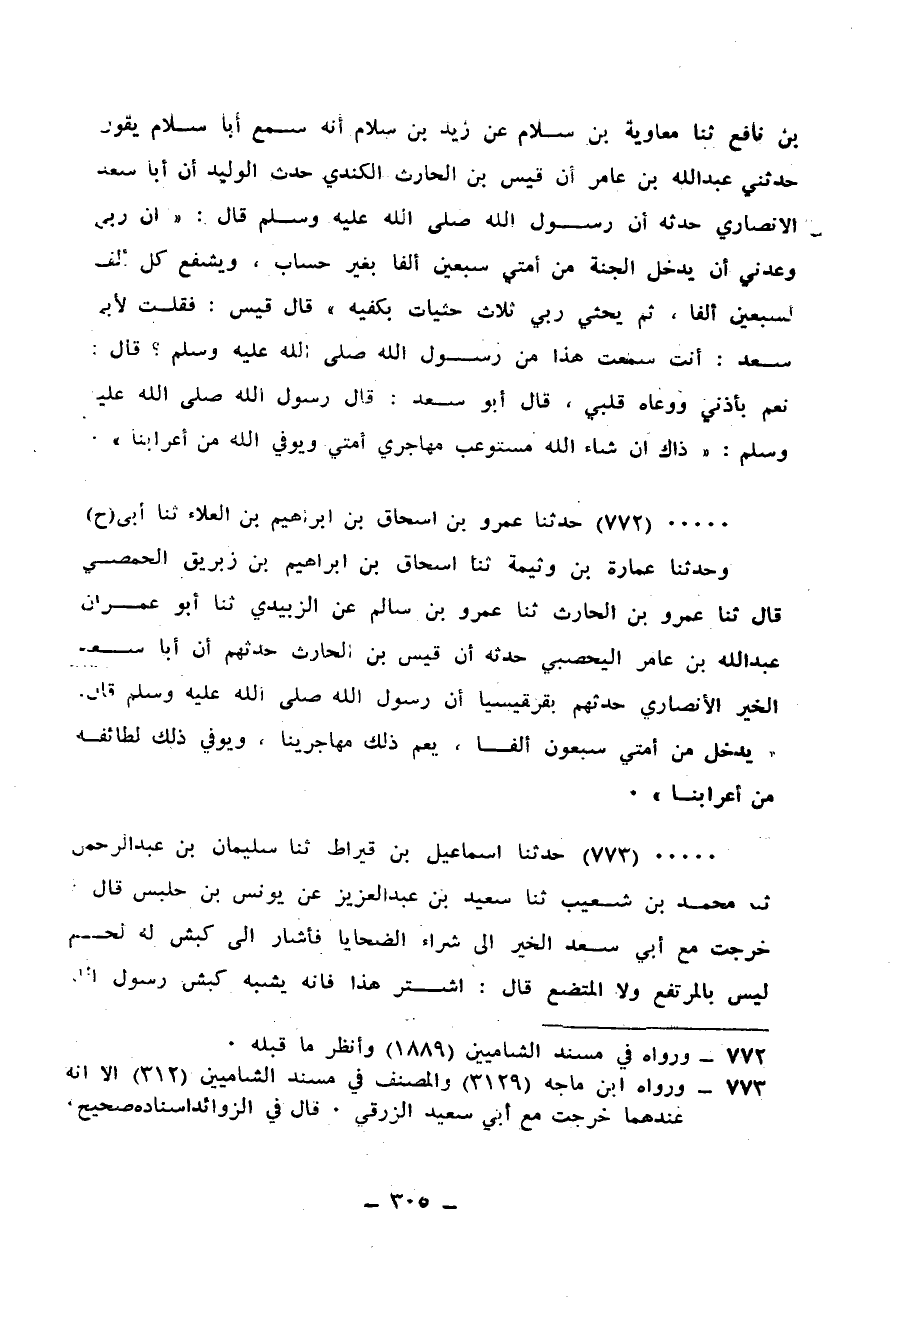 بن نافع ثنا معاوية بن سلام عن زيد بن سلام أنه سمع أبا سلام يقول
حدثني عبدالله بن عامر أن قيس بن الحارث الكندي حدث الوليد أن أبا سعد
الانصاري حدثه أن رسول الله صلى الله عليه وسلم قال : « ان ربي
وعدني أن يدخل الجنة من أمتي سبعين ألفا بغير حساب ، ويشفع كل ألف
لسبعين ألفا ، ثم يحثي ربي ثلاث حثيات بكفيه » قال قيس : فقلت لأبي
سعد : أنت سمعت هذا من رسول الله صلى الله عليه وسلم ؟ قال :
نعم بأذني ووعاه قلبي ، قال أبو سعد : قال رسول الله صلى الله عليه
وسلم : « ذاك ان شاء الله مستوعب مهاجري أمتي ويوفي الله من أعرابنا » ٠
٠٠٠٠٠ (٧٧٢) حدثنا عمرو بن اسحاق بن ابراهيم بن العلاء ثنا أبى(ح)
وحدثنا عمارة بن وثيمة ثنا اسحاق بن ابراهيم بن زبريق الحمصي
قال ثنا عمرو بن الحارث ثنا عمرو بن سالم عن الزبيدي ثنا أبو عمران
عبدالله بن عامر اليحصبي حدثه أن قيس بن الحارث حدثهم أن أبا سعد
الخير الأنصاري حدثهم بقرقيسيا أن رسول الله صلى الله عليه وسلم قال:
« يدخل من أمتي سبعون ألفا ، يعم ذلك مهاجرينا ، ويوفي ذلك لطائفه
من أعرابنا » ٠
٠٠٠٠٠ (٧٧٣) حدثنا اسماعيل بن قيراط ثنا سليمان بن عبدالرحمن
ثنا محمد بن شعيب ثنا سعيد بن عبدالعزيز عن يونس بن حلبس قال :
خرجت مع أبي سعد الخير الى شراء الضحايا فأشار الى كبش له لحم
ليس بالمرتفع ولا المتضع قال : اشتر هذا فانه يشبه كبش رسول الله
٧٧٢ ــ ورواه في مسند الشاميين (١٨٨٩) وأنظر ما قبله ٠
٧٧٣ ــ ورواه ابن ماجه (٣١٢٩) والمصنف في مسند الشاميين (٣١٢) الا انه
عندهما خرجت مع أبي سعيد الزرقي ٠ قال في الزوائداسناده صحيح ٠
ــ ٣٠٥ ــ